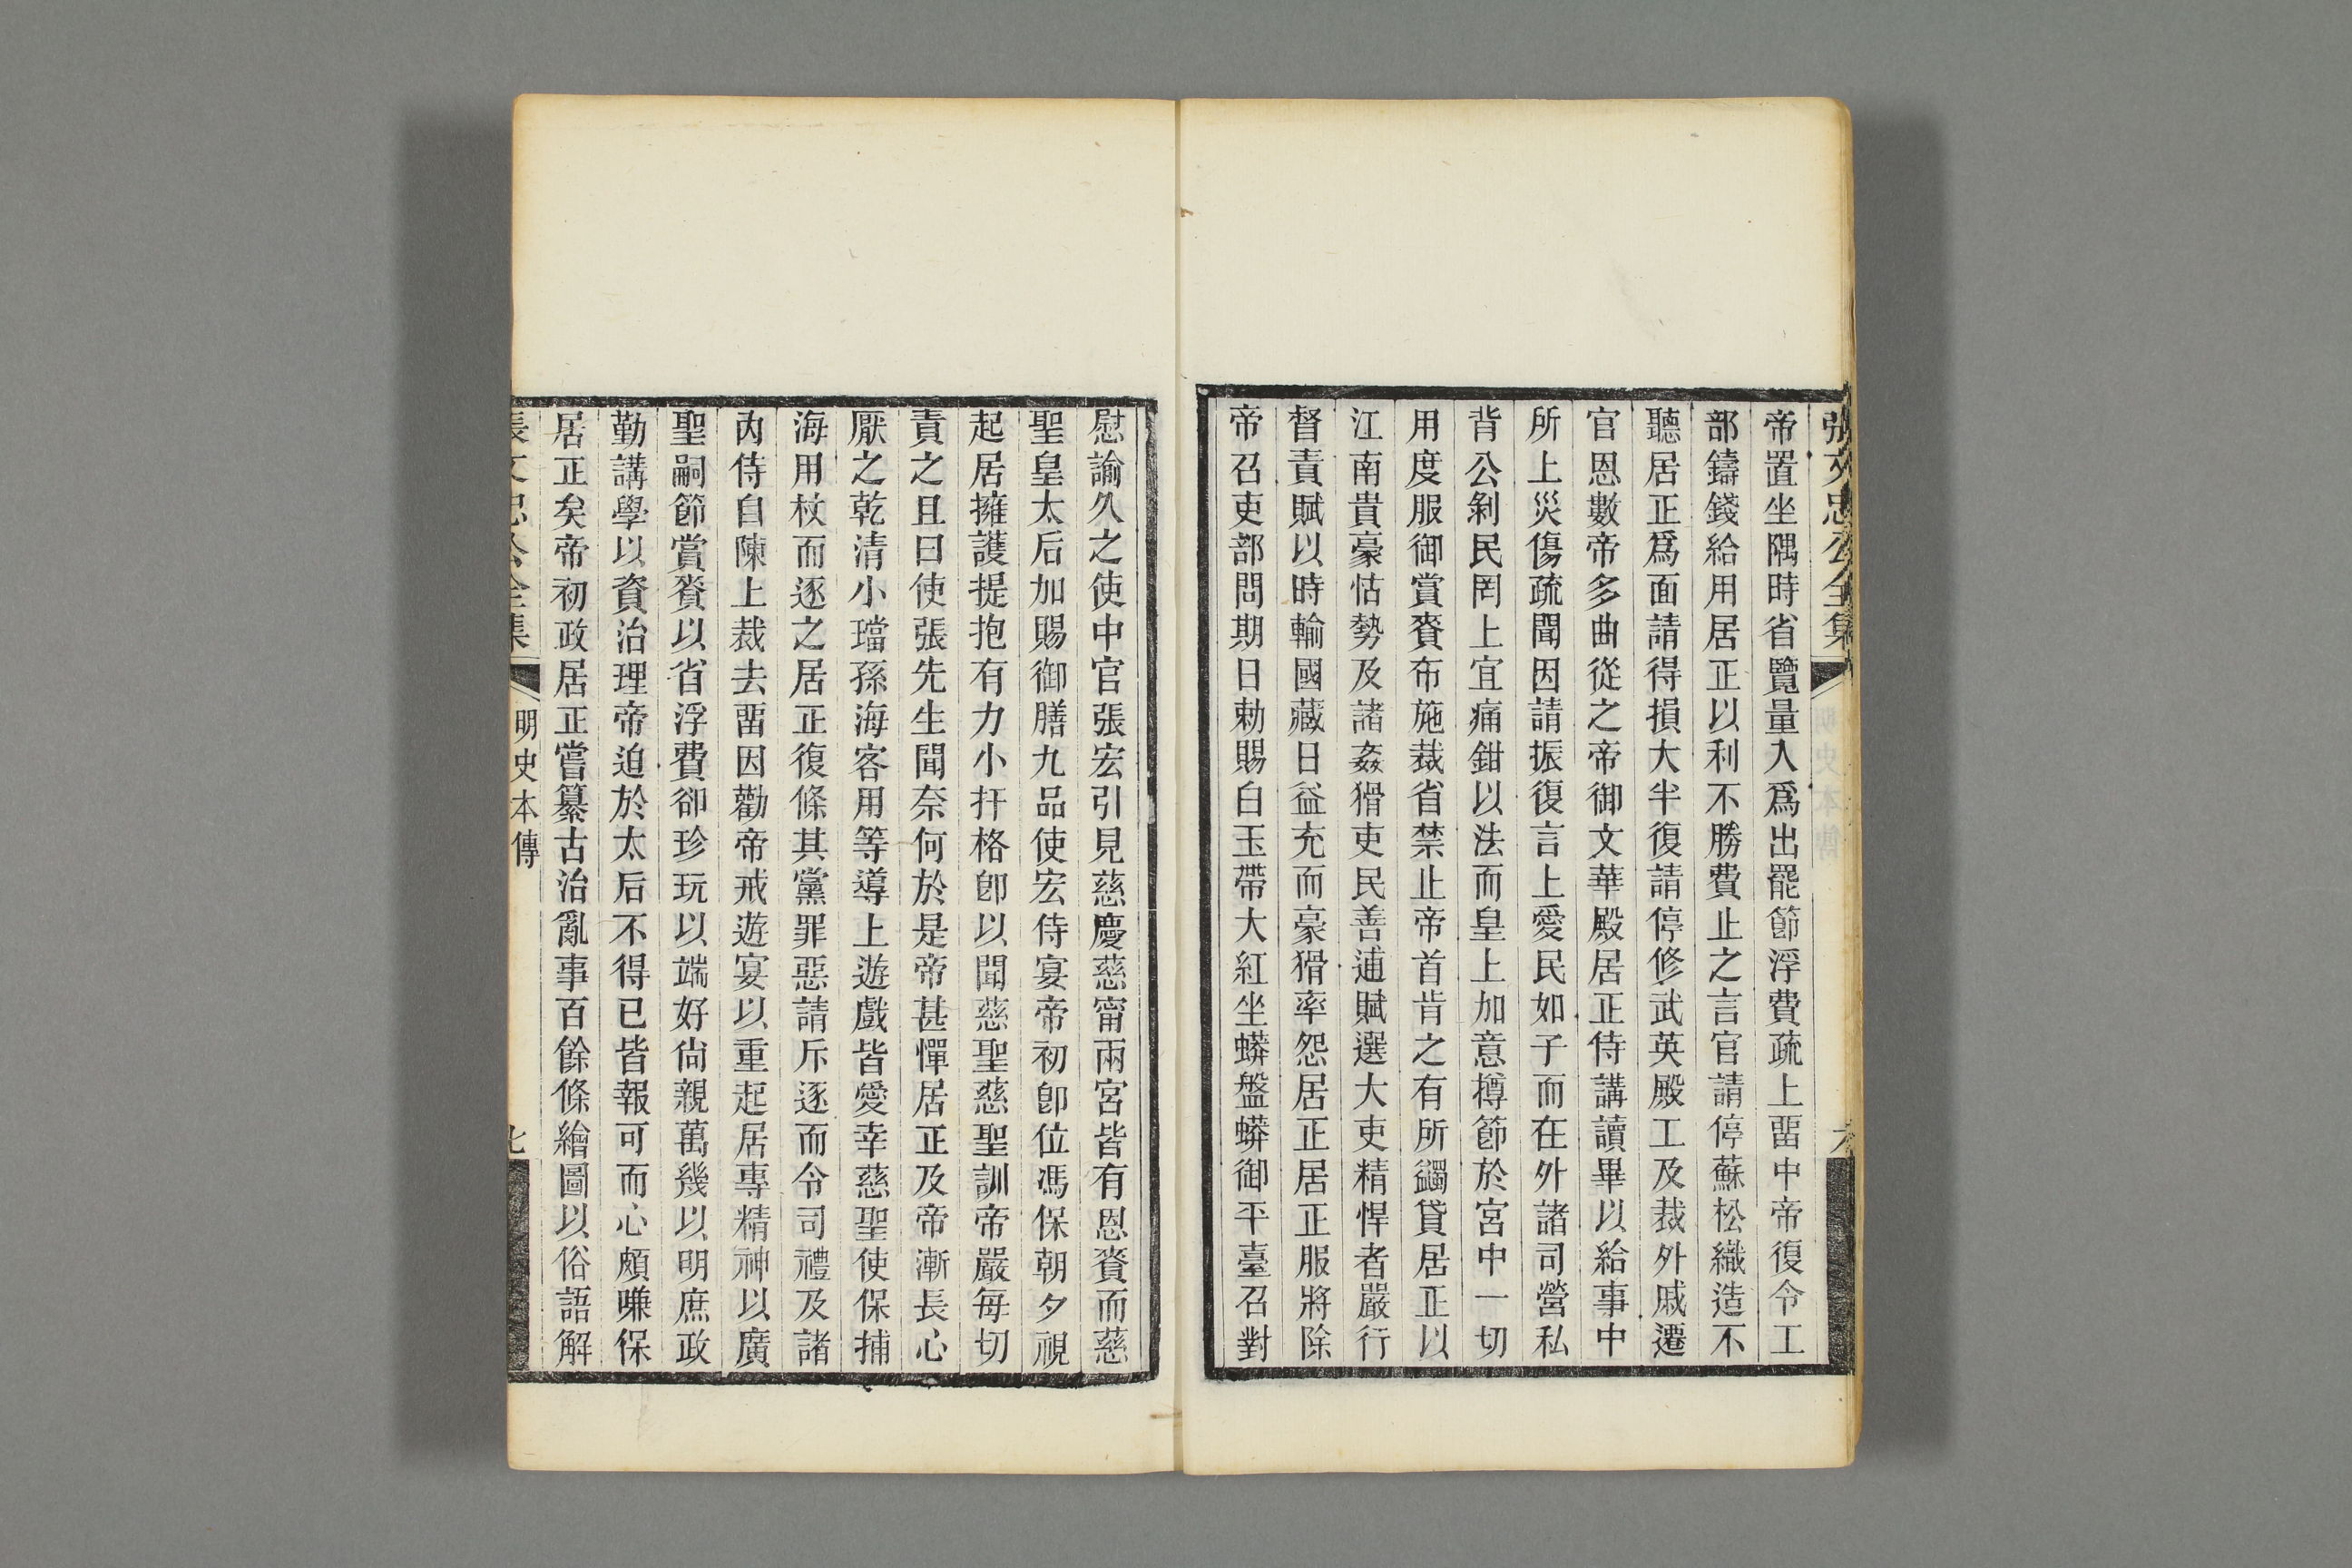 張文忠公全集
六
帝置坐隅時省覽量入爲出罷節浮費疏上畱中帝復令工
部鑄錢給用居正以利不勝費止之言官請停蘇松織造不
聽居正爲面請得損大半復請停修武英殿工及裁外戚遷
官恩數帝多曲從之帝御文華殿居正侍講讀畢以給事中
所上災傷疏聞因請振復言上愛民如子而在外諸司營私
背公剝民罔上宜痛鉗以法而皇上加意撙節於宮中一切
用度服御賞賚布施裁省禁止帝首肯之有所蠲貸居正以
江南貴豪怙勢及諸姦猾吏民善逋賦選大吏精悍者嚴行
督責賦以時輸國藏日益充而豪猾率怨居正居正服將除
帝召吏部問期日勅賜白玉帶大紅坐蟒盤蟒御平臺召對
慰諭久之使中官張宏引見慈慶慈甯兩宮皆有恩賚而慈
聖皇太后加賜御膳九品使宏侍宴帝初卽位馮保朝夕視
起居擁護提抱有力小扞格卽以聞慈聖慈聖訓帝嚴每切
責之且曰使張先生聞奈何於是帝甚憚居正及帝漸長心
厭之乾清小璫孫海客用等導上遊戲皆愛幸慈聖使保捕
海用杖而逐之居正復條其黨罪惡請斥逐而令司禮及諸
內侍自陳上裁去畱因勸帝戒遊宴以重起居專精神以廣
聖嗣節賞賚以省浮費卻珍玩以端好尙親萬幾以明庶政
勤講學以資治理帝迫於太后不得已皆報可而心頗嗛保
居正矣帝初政居正嘗纂古治亂事百餘條繪圖以俗語解
張文忠公全集
明史本傳
七